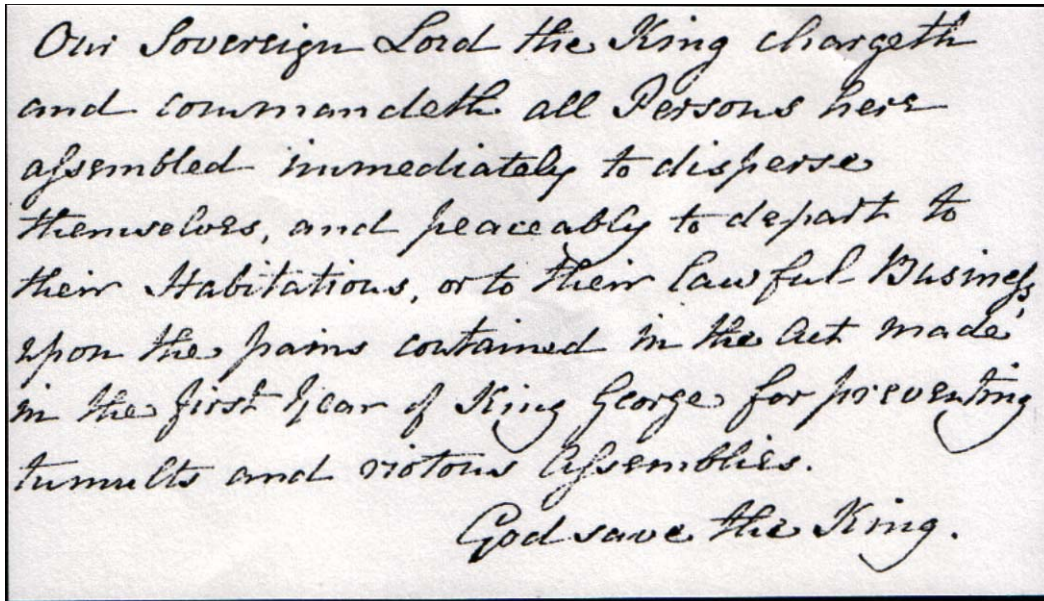 Our Sovereign Lord the King chargeth
and commandeth all Persons here
aſsembled immediately to disperse
themselves, and peaceably to depart to
their Habitations, or to their lawful Business,
upon the pains contained in the Act made
in the first Year of King George for preventing
tumults and riotous Aſsemblies.
God save the King.